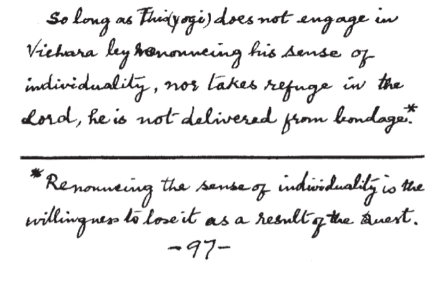 So long as This(yogi) does not engage in
Vichara by renouncing his sense of
individuality, nor takes refuge in the
Lord, he is not delivered from bondage.*
*Renouncing the sense of individuality is the
willingness to lose it as a result of the Quest.
-97-